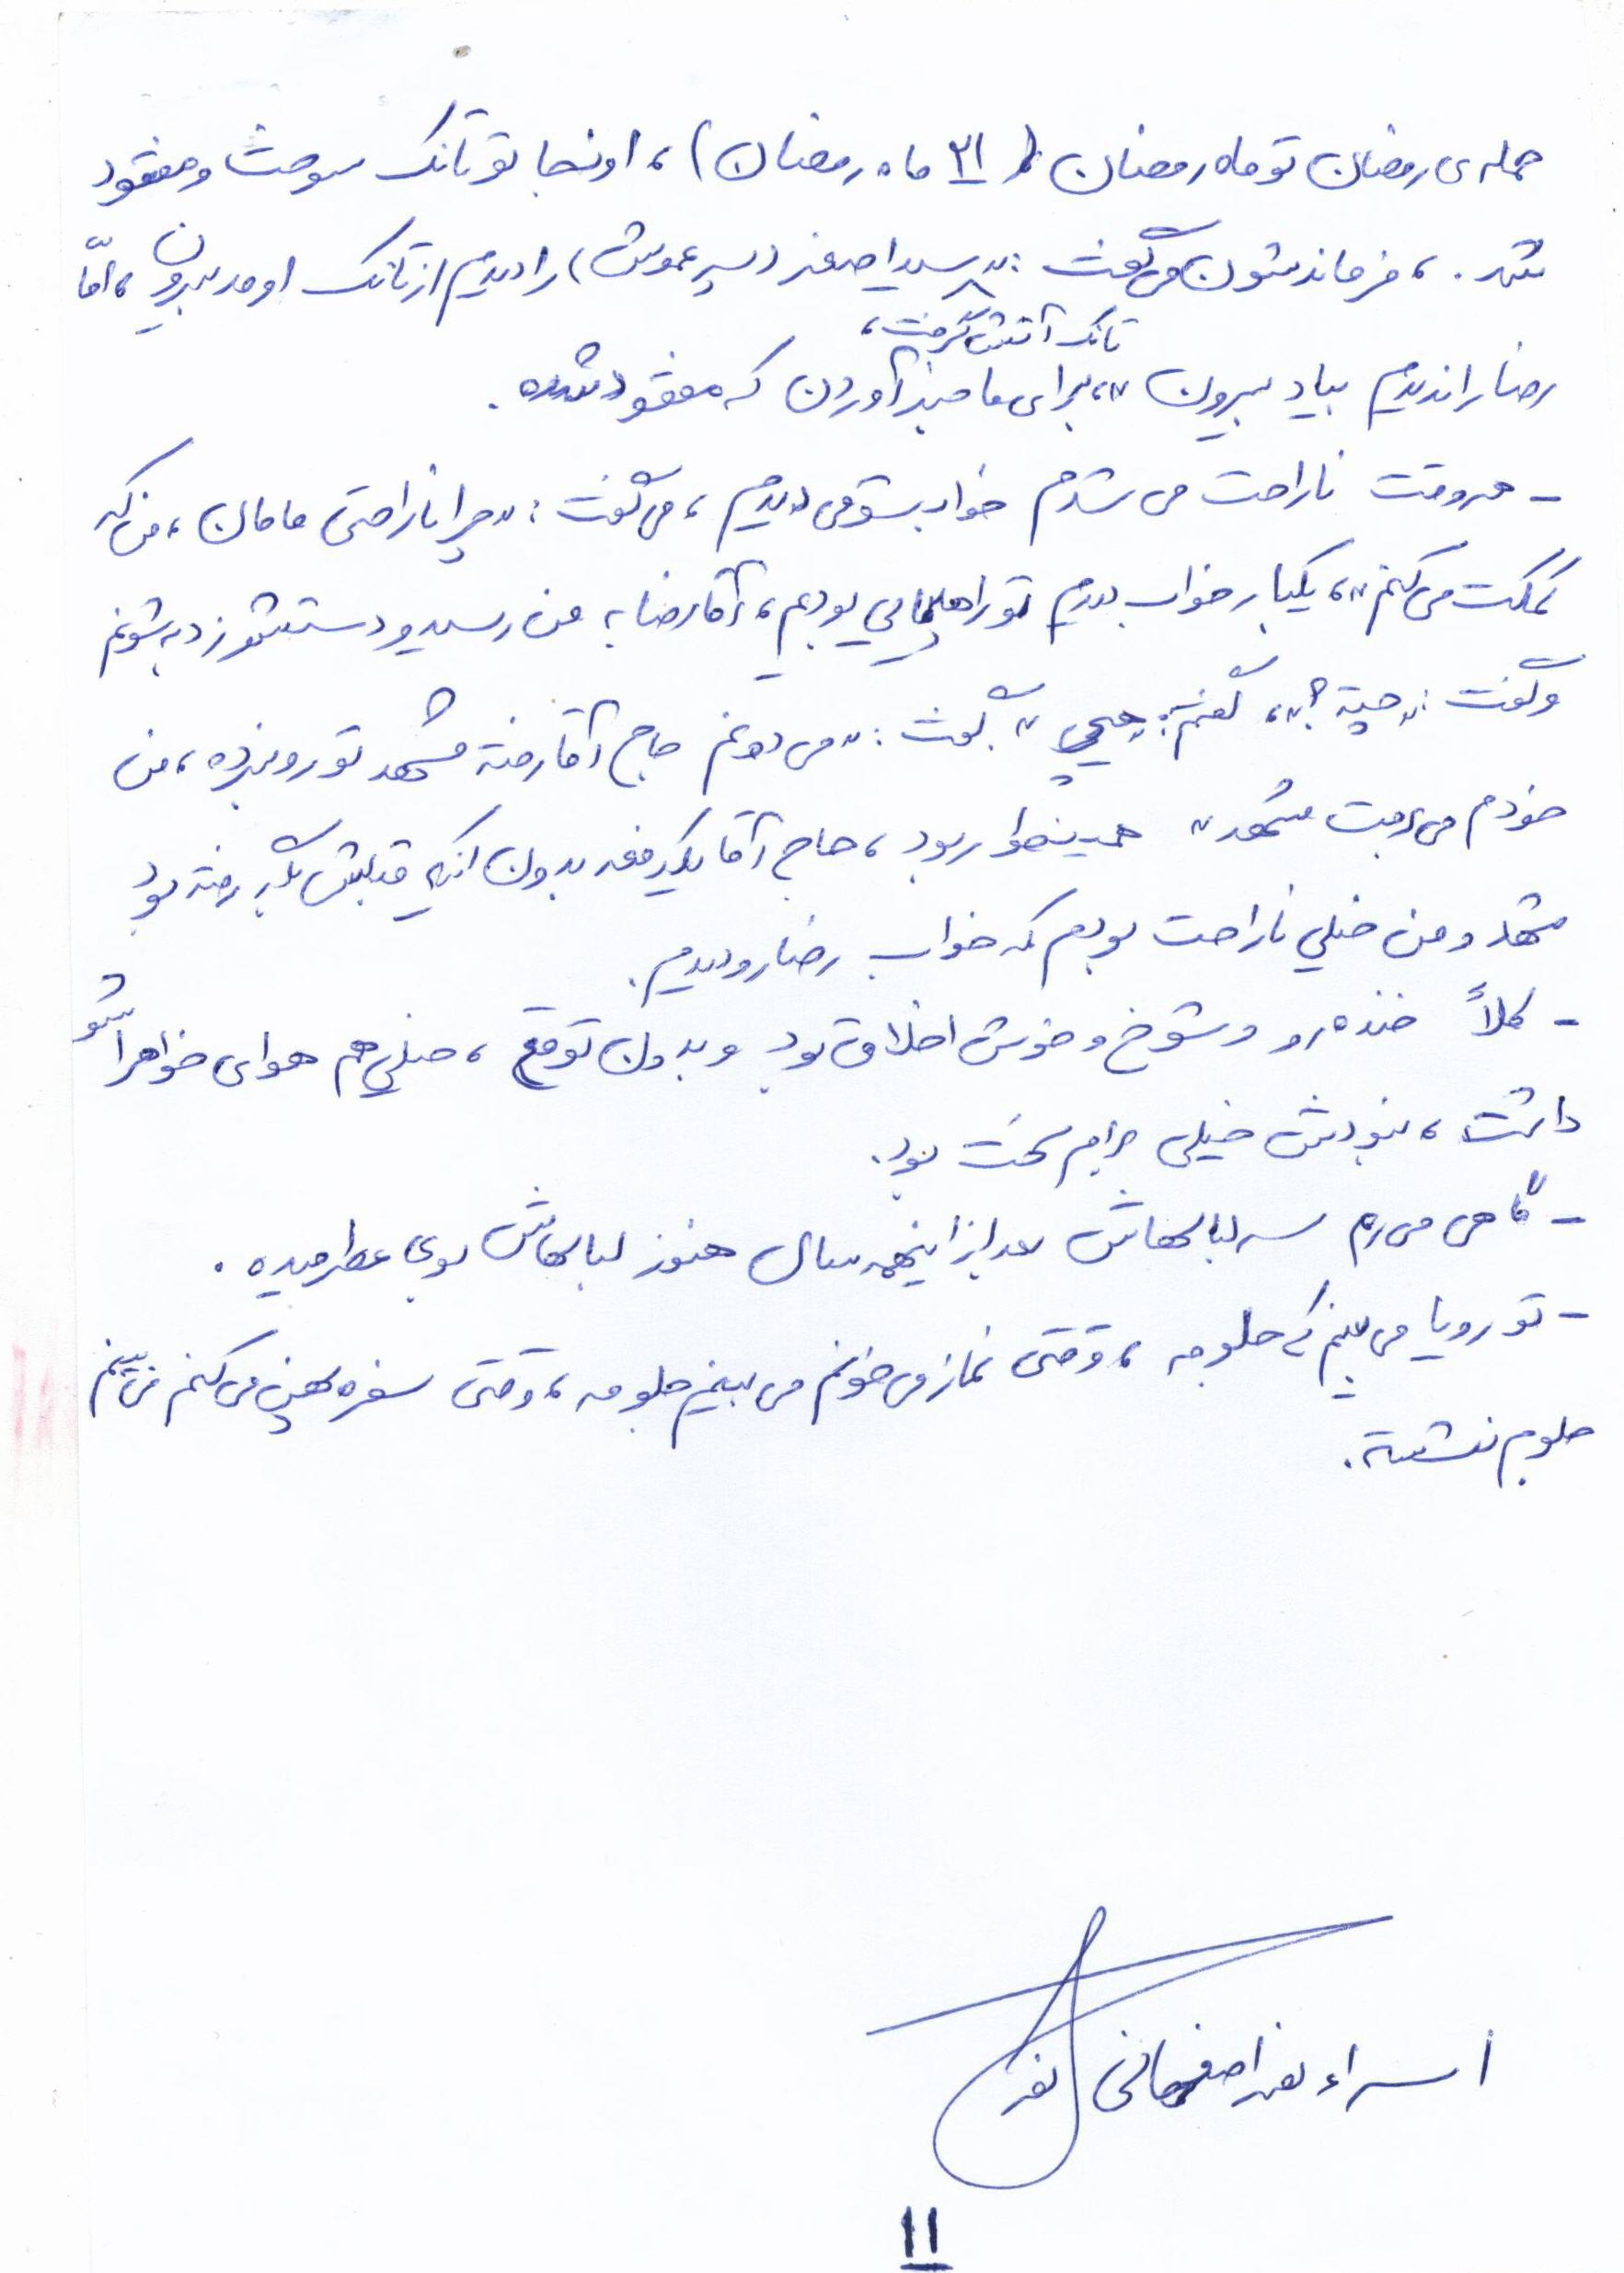 حمله‌ی رمضان تو ماه رمضان (۲۱ ماه رمضان)، اونجا تو تانک سوخت و مفقود
شد. ، فرماندشون می‌گفت: «سید اصغر (پسر عموش) را دیدم از تانک اومد بیرون، امّا
تانک آتش گرفت،
رضا را ندیدم بیاد بیرون»، برای ما خبر آوردن که مفقود شده.
- هروقت ناراحت می‌شدم خوابشو می‌دیدم، می‌گفت: «چرا ناراحتی مامان، من که
کمکت می‌کنم»، یکبار خواب دیدم تو راهپیمایی بودیم، آقا رضا به من رسید و دستشو زد به شونم
و گفت: «چیه؟»، گفتم: «هیچی» گفت: «می‌دونم حاج آقا رفته مشهد تو رو نبرده، من
خودم می‌برمت مشهد» همینطور بود، حاج آقا یکدفعه بدون اینکه قبلش بگه رفته بود
مشهد و من خیلی ناراحت بودم که خواب رضا رو دیدم.
- کلاً خنده‌رو و شوخ و خوش اخلاق بود و بدون توقع، خیلی هم هوای خواهراشو
داشت، نبودش خیلی برام سخت بود.
- گاهی می‌رم سر لباسهاش بعد از اینهمه سال هنوز لباسهاش بوی عطر میده.
- تو رویا می‌بینم که جلومه، وقتی نماز می‌خونم می‌بینم جلومه، وقتی سفره پهن می‌کنم می‌بینم
جلوم نشسته.
اسراء نصر اصفهانی
نصر
۱۱